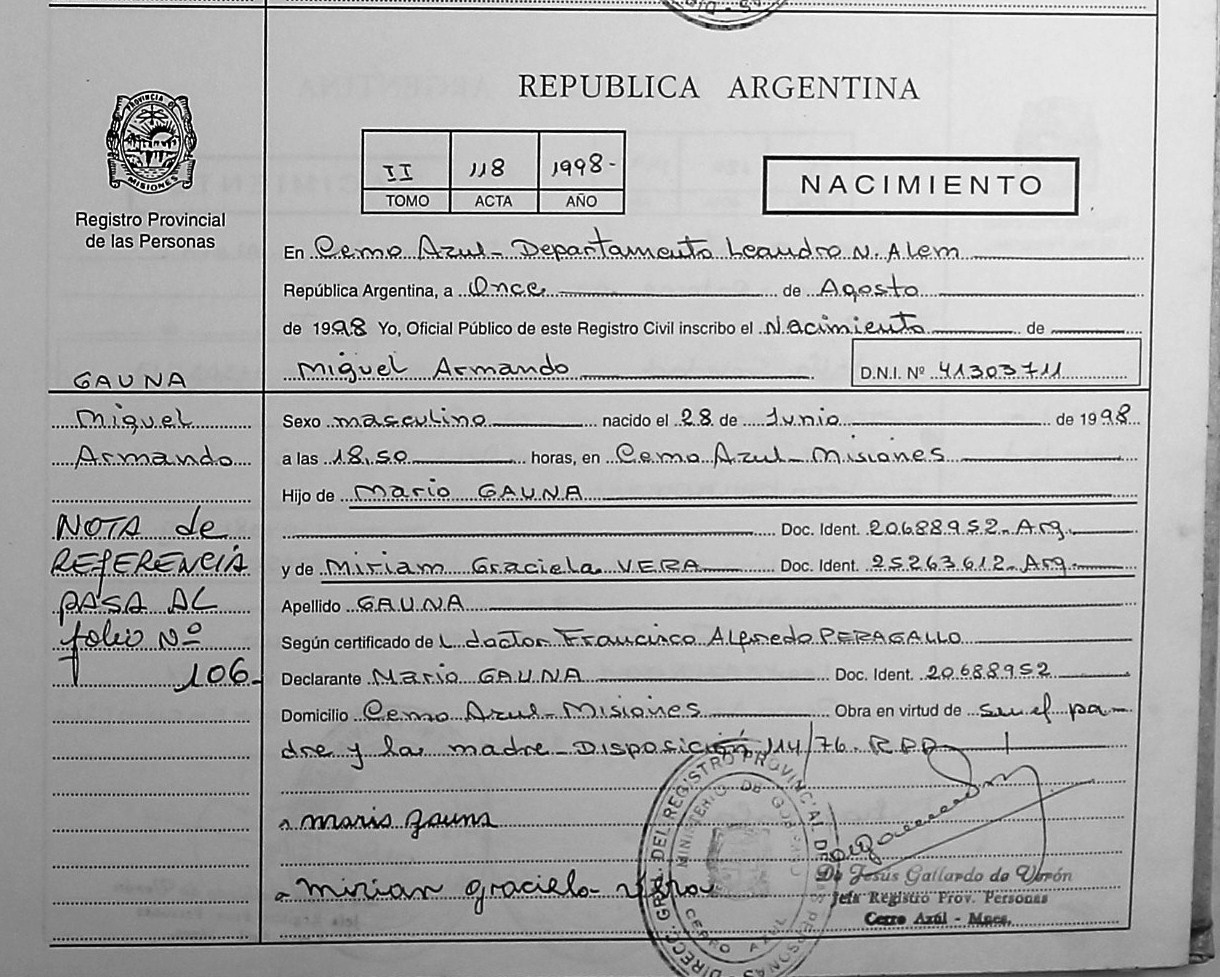 REPUBLICA ARGENTINA
PROVINCIA D.
MISIONES
Registro Provincial
de las Personas
II 118 1998-
TOMO ACTA AÑO
NACIMIENTO
En Cerro Azul - Departamento Leandro N. Alem
República Argentina, a Once de Agosto
de 1998 Yo, Oficial Público de este Registro Civil inscribo el Nacimiento de
Miguel Armando D.N.I. Nº 41303711
GAUNA
Miguel
Armando
NOTA de
REFERENCIA
PASA AL
folio Nº
106-
Sexo masculino nacido el 28 de Junio de 1998
a las 18,50 horas, en Cerro Azul - Misiones
Hijo de Mario GAUNA
Doc. Ident. 20688952-Arg.
y de Miriam Graciela VERA Doc. Ident. 25263612-Arg.
Apellido GAUNA
Según certificado de L doctor Francisco Alfredo PERAGALLO
Declarante Mario GAUNA Doc. Ident. 20688952
Domicilio Cerro Azul - Misiones Obra en virtud de ser el pa-
dre y la madre - Disposición 114/76. RPP
mario gauna
mirian graciela vera
DIRECC. GRAL DEL REGISTRO PROVINCIAL DE LAS PERSONAS
MINISTERIO DE GOBIERNO
CERRO AZUL
De Jesús Gallardo de Verón
Jefa Registro Prov. Personas
Cerro Azúl - Mnes.